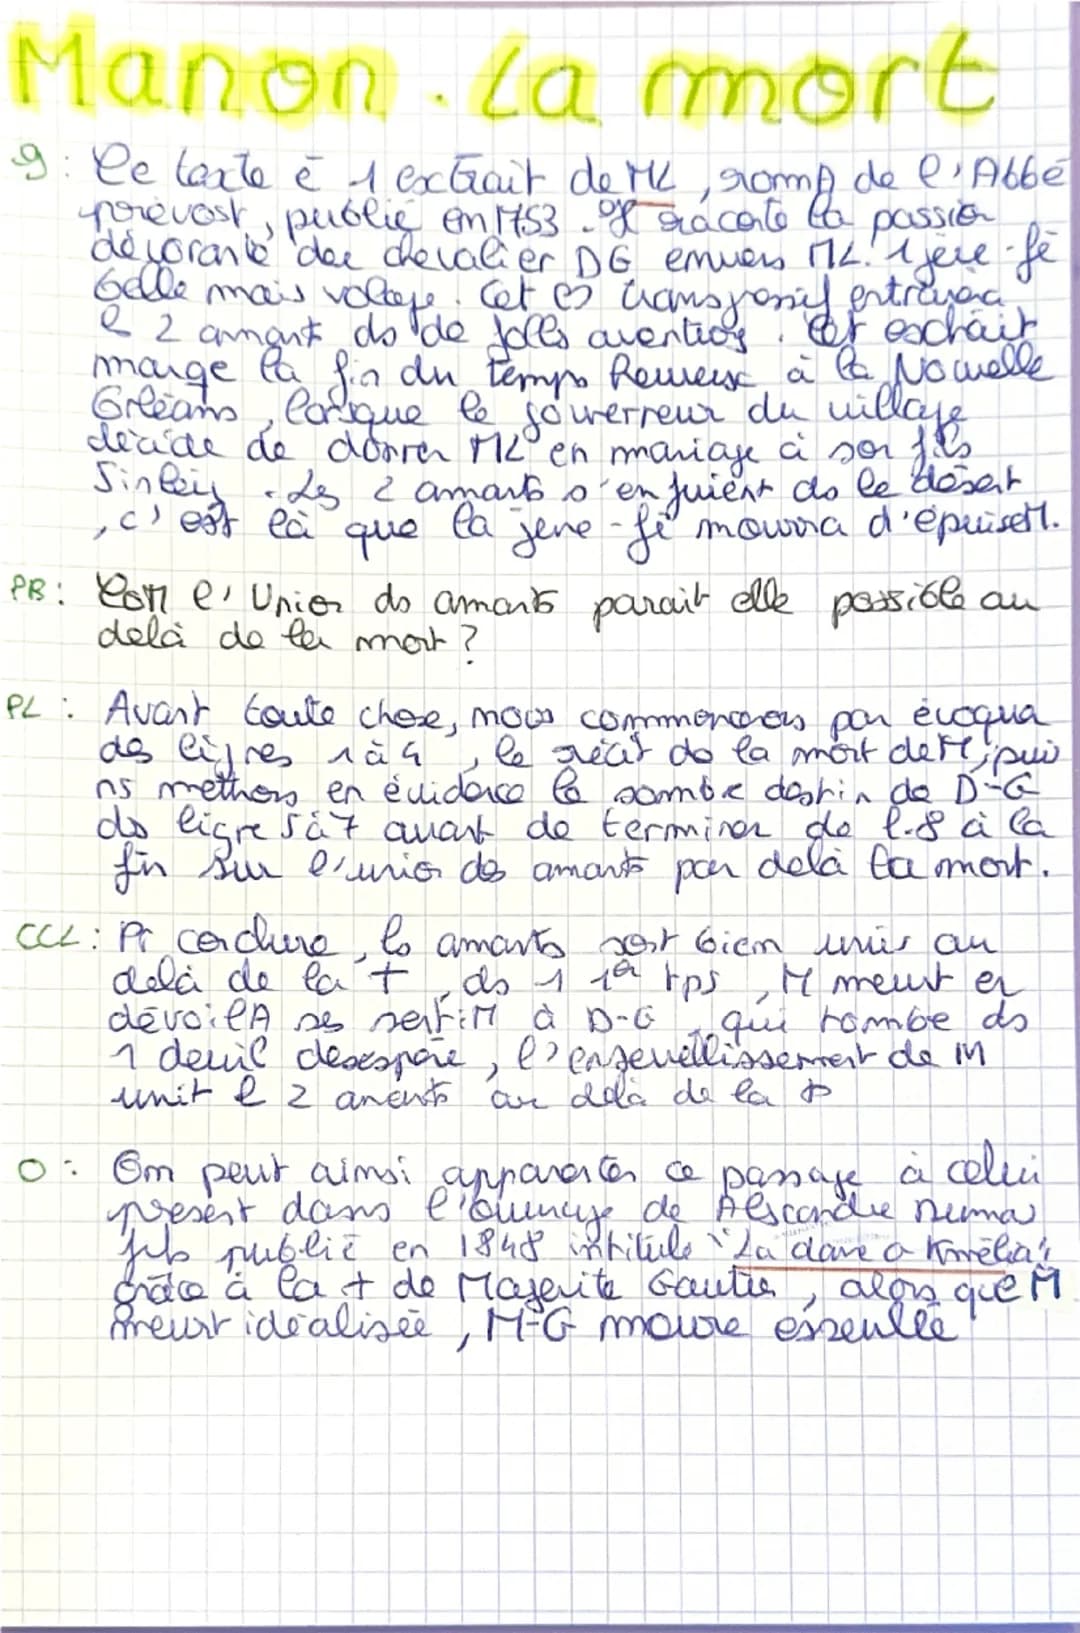 Manon. La mort
g : Ce texte é 1 extrait de ML, romA de l'Abbé
prévost, publié en 1753. Il raconte la passion
dévorante du chevalier DG envers ML. 1 jeie-fe
belle mais volage. Cet transgressif entraina
l 2 amant ds de folles aventios. Cet exchait
marge la fin du temps heureux à la Nouvelle
Orléans, lorsque le gouverreur du village
décide de donner ML en mariage à son fils
Sinleiy. Les 2 amants s'enfuient ds le désert
, c'est là que la jene-fe mourra d'épuiseM.
PB : ComM l'Union ds amants parait elle possible au
delà de la mort ?
PL : Avant toute chose, nous commencerons par évoqua
des lignes 1 à 4, le récit de la mort de M, puis
ns methons en évidence le sombre destin de D-G
ds ligne 5 à 7 avant de terminer de l.8 à la
fin sur l'union des amants par delà la mort.
CCL : Pr conclure, ls amants sont bien unis au
delà de la +, ds 1 1er tps, M meurt en
dévoilA ses sentiM à D-G, qui tombe ds
1 deuil désespéré, l'ensevellissement de M
unit l 2 amants au delà de la
O : On peut ainsi apparenter ce passage à celui
présent dans l'ouvrage de Alscandre Duma
fils publié en 1848 intitulé "La dame o Kmélia",
grâce à la + de Magerite Gautier, alors que M
meurt idéalisée, M-G moure esseullé